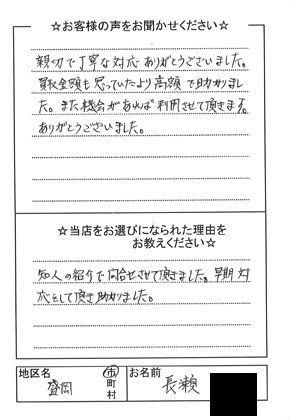 ☆お客様の声をお聞かせください☆
親切で丁寧な対応 ありがとうございました。
買取金額も思っていたより高額で助かりまし
た。また機会があれば利用させて頂きます。
ありがとうございました。
☆当店をお選びになられた理由を
お教えください☆
知人の紹介で問合せさせて頂きました。早期対
応をして頂き助かりました。
地区名
盛岡
市
町
村
お名前
長瀬